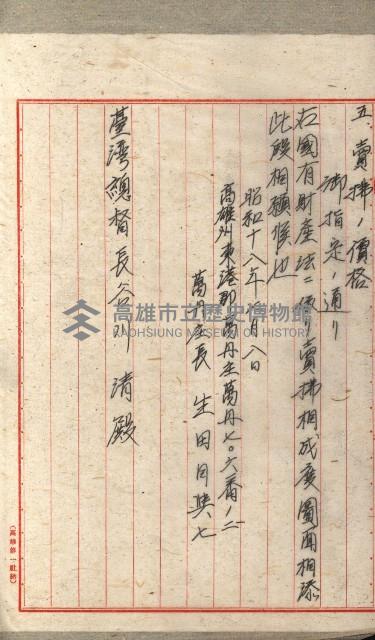 五、賣拂ノ價格
御指定ノ通リ
右國有財產法ニ依リ賣拂相成度圖面相添
此段相願候也
昭和十八年 月八日
高雄州東港郡萬丹庄萬丹七〇六番ノ二
萬丹庄長 生田目興七
臺灣總督長谷川清殿
高雄市立歷史博物館
KAOHSIUNG MUSEUM OF HISTORY